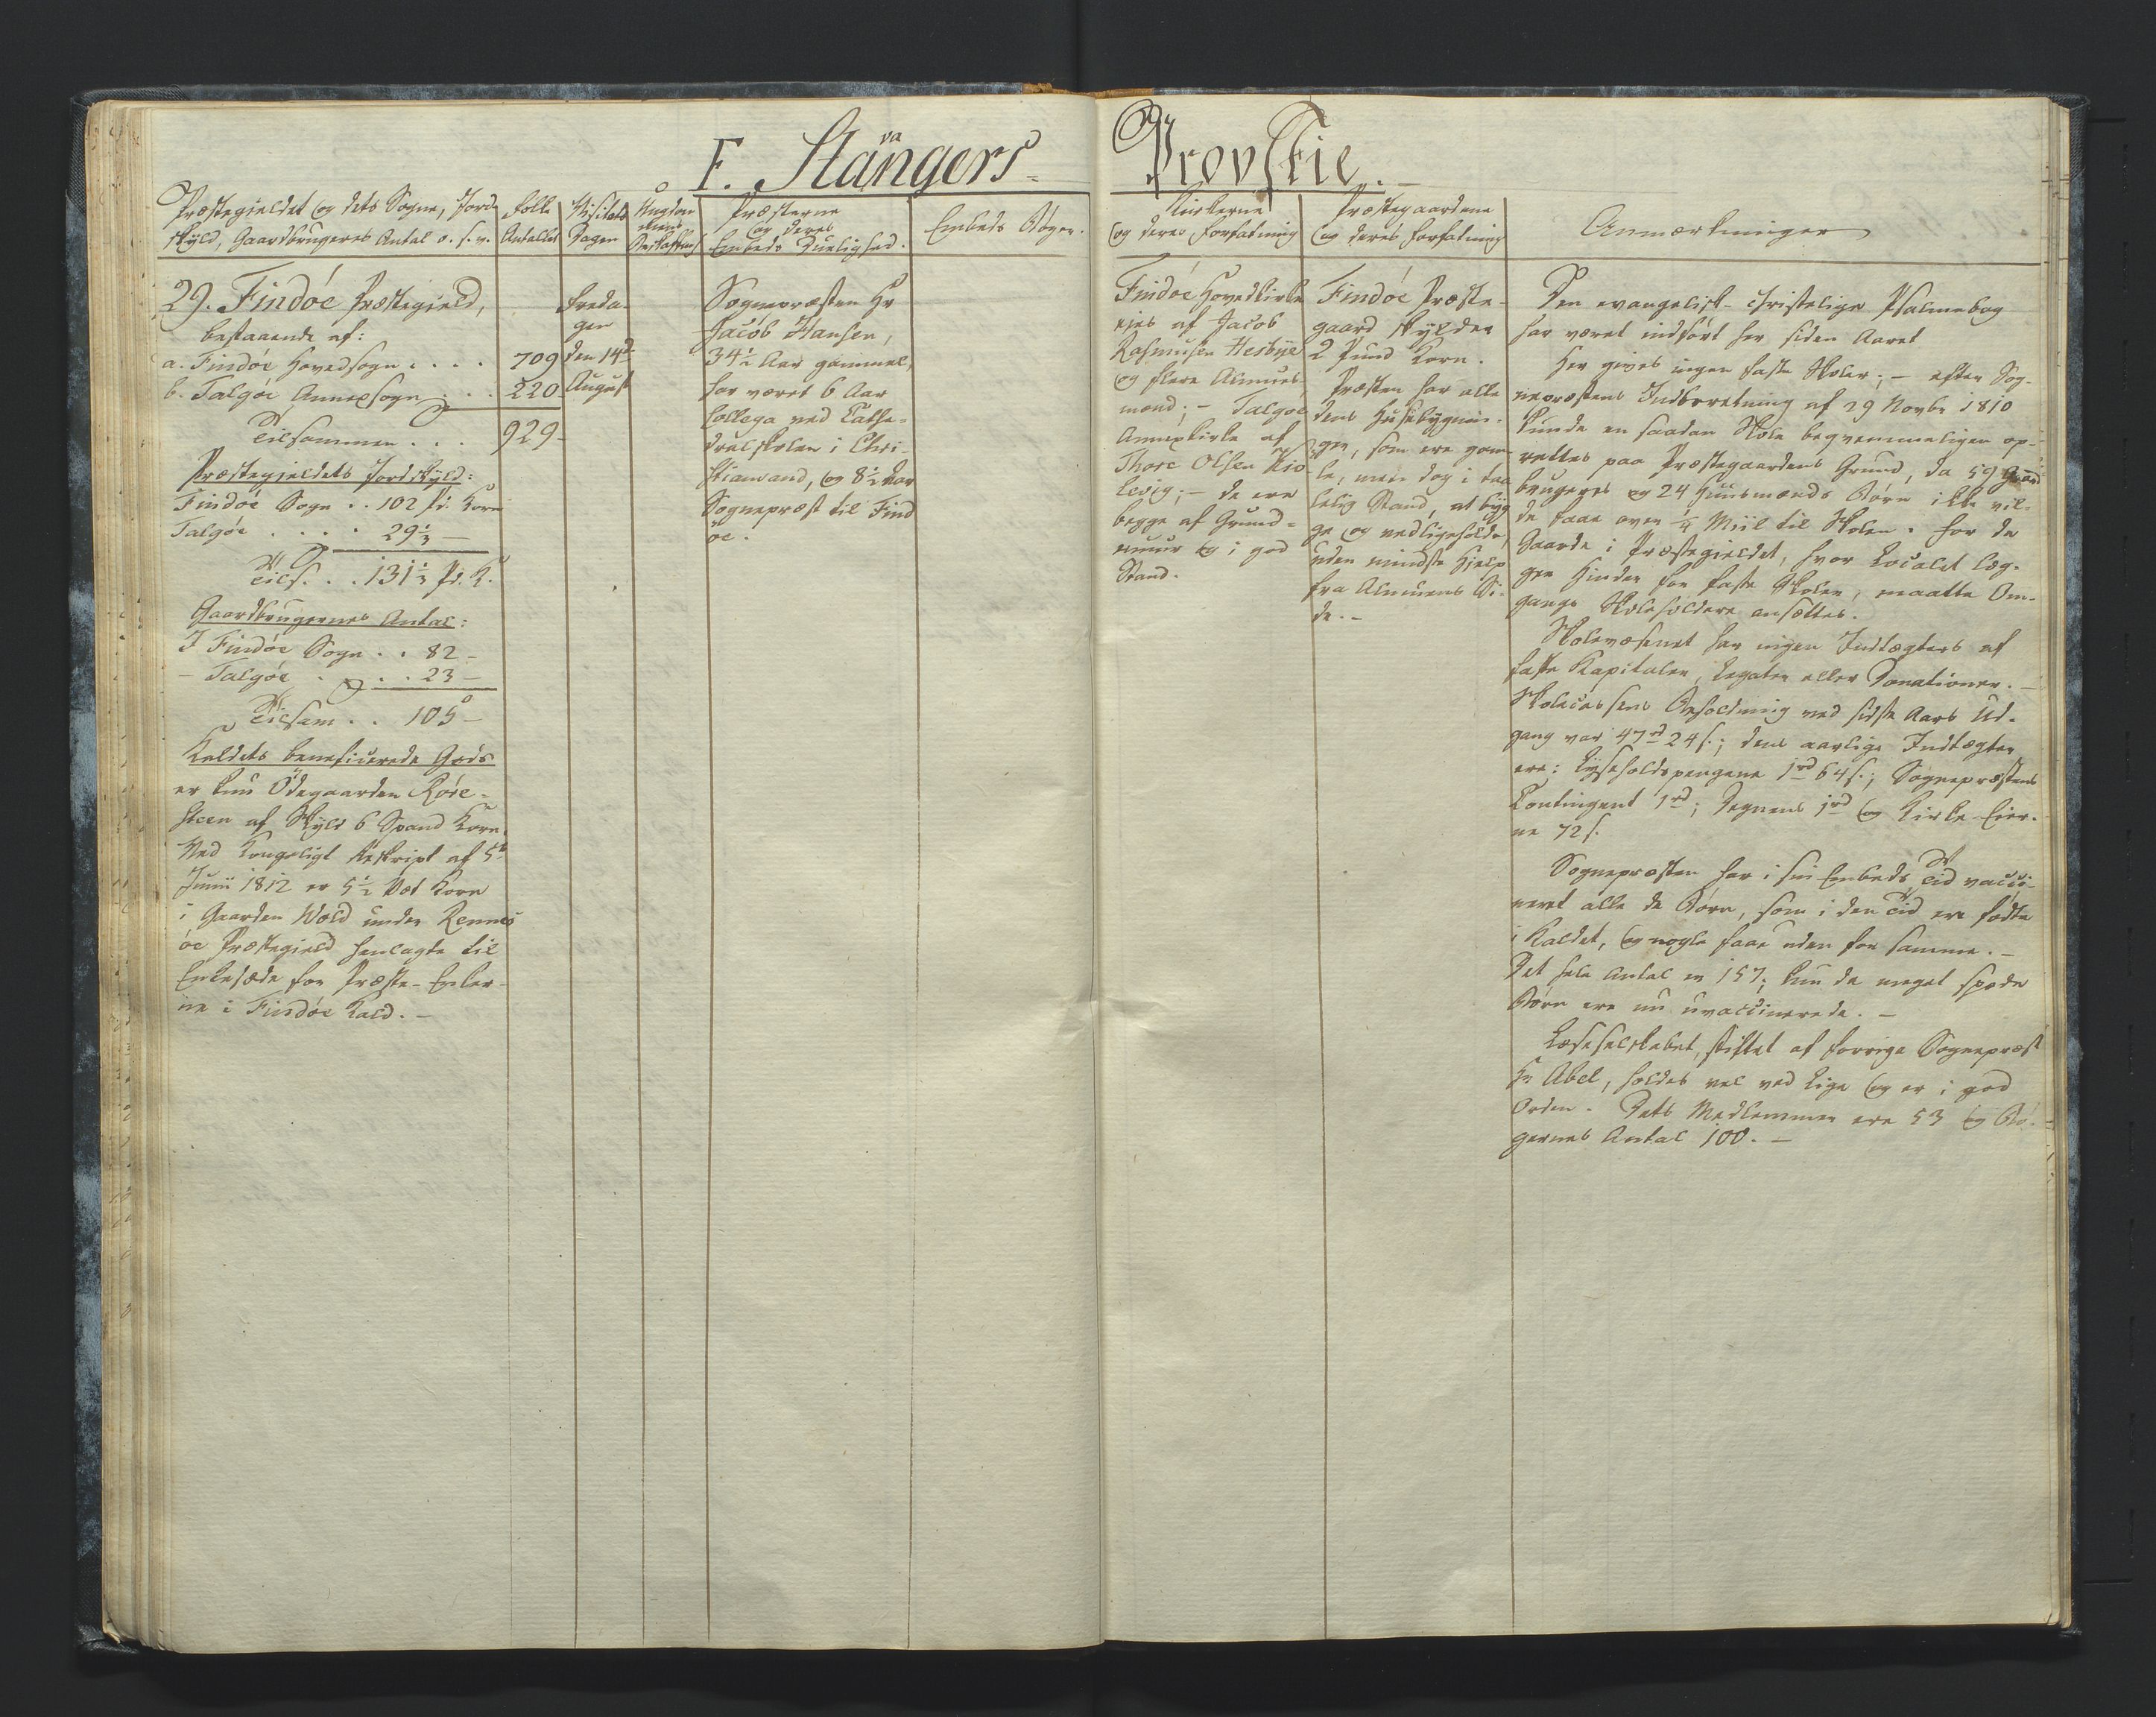 F. Stavangers-
Provstie.
Præstegieldet og dets Sogne, Jord-
skyld, Gaardbrugeres Antal o. s. v.
Folke
Antallet
Visitats
Dagen
Ungdom-
mens
Præsterne
og deres
Embeds Duelighed.
Embeds Bøger.
29. Findöe Præstegield,
bestaaende af:
a. Findöe Hovedsogn . . . . 709
b. Talgöe Annexsogn . . . 220
Tilsammen . . . 929-
Præstegieldets Jordskyld:
Findöe Sogn . . 102 Pd. Korn
Talgöe . . . . 29 1/3 —
Tils. . . 131 1/3 Pd. K.
Gaardbrugernes Antal:
I Findöe Sogn . . 82 -
- Talgöe . . . . 23 -
Tilsam . . 105 -
Kaldets beneficerede Gods
er kun Ödegaarden Röse-
steen af Skyld 6 Spand Korn.
Ved Kongeligt Reskript af 5t
Junii 1812 er 5 1/2 Vet Korn
i Gaarden Wold under Rennes
öe Præstegield henlagte til
Enkesæde for Præste-Enker-
ne i Findöe Kald. -
Freda-
gen
den 14d
August
Sognepræsten Hr
Jacob Hansen,
34 1/2 Aar gammel,
har været 6 Aar
Collega ved Cathe-
dralskolen i Chri-
stiansand, og 8 1/2 Aar
Sognepræst til Find
öe.
Kirkerne
og deres Forfatning
Præstegaardene
og deres Forfatning
Anmærkninger
Findöe Hovedkirke
ejes af Jacob
Rasmusen Hesbye
og flere Almues-
mænd; - Talgöe
Annexkirke af
Thore Olsen Kio-
levig; - de ere
begge af Grund-
muur og i god
Stand.
Findöe Præste-
gaard skylder
2 Pund Korn.
Præsten har alle
dens Husebygnin-
ger, som ere gam-
le, men dog i taa-
lelig Stand, at byg
ge og vedligeholde,
uden mindste Hjelp
fra Almuens Si-
de. -
Den evangelisk-christelige Psalmebog
har været indført her siden Aaret
Her gives ingen faste Skoler; - efter Sog-
nepræstens Indberetning af 29 Novbr 1810
kunde en saadan Skole beqvemmeligen op-
rettes paa Præstegaardens Grund, da 59 Gaard
brugeres og 24 Huusmænds Børn ikke vil-
de faae over 1/4 Miil til Skolen. For de
Gaarde i Præstegieldet, hvor Localet læg-
ger Hinder for faste Skoler, maatte Om-
gangs Skoleholdere ansættes.
Skolevæsenet har ingen Indtægter af
faste Kapitaler, Legater eller Donationer. -
Skolecassens Beholdning ved sidste Aars Ud-
gang var 47 rd 24 s.; dens aarlige Indtægter
ere: Lyseholdspengene 1 rd 64 s.; Sognepræstens
Contingent 1 rd; Degnens 1 rd og Kirke-Eier-
ne 72 s.
Sognepræsten har i sin Embeds Tid vacci-
neret alle de Børn, som i den Tid ere fødte
i Kaldet, og nogle faae uden for samme. -
Det hele Antal er 157; kun de meget spæde
Børn ere nu uvaccinerede. -
Læseselskabet, stiftet af forrige Sognepræst
Hr Abel, holdes vel ved Lige og er i god
Orden. Dets Medlemmer ere 53 og Bø-
gernes Antal 100. -